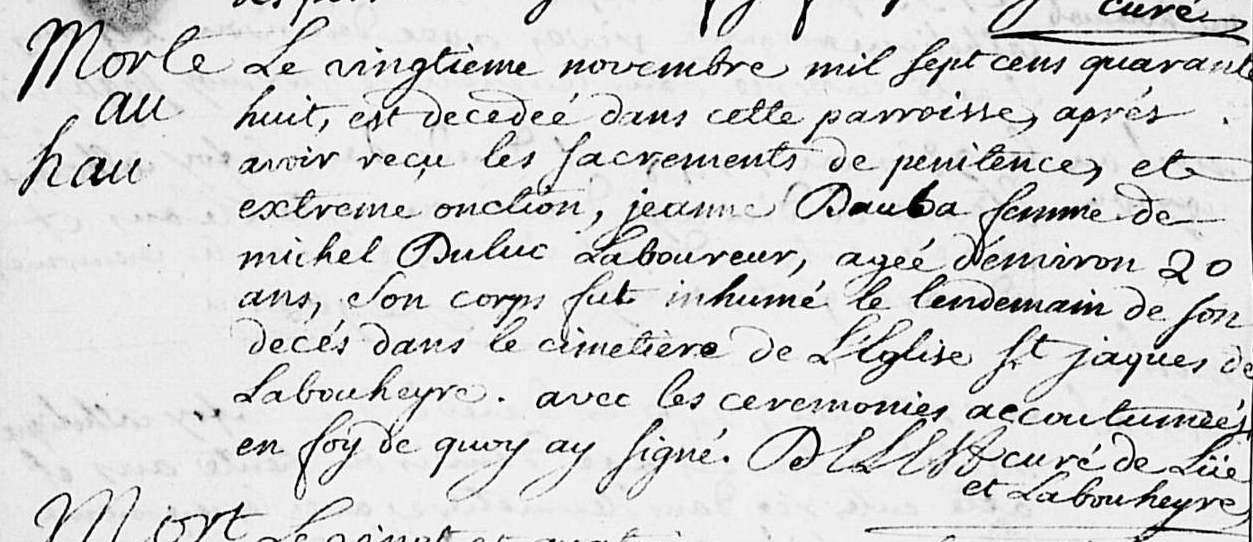 curé
Morte Le vingtieme novembre mil sept cens quarante
au huit, est decedeé dans cette parroisse, aprés
hau avoir reçu les sacrements de penitence, et
extreme onction, jeanne Dauba femme de
michel Duluc Laboureur, ageé d'environ 20
ans, son corps fut inhumé le lendemain de son
decés dans le cimetiere de L'Eglise St jaques de
Labouheyre. avec les ceremonies accoutumeés,
en foy de quoy ay signé. curé de Lüe
et Labouheyre
Mort Le vingt et